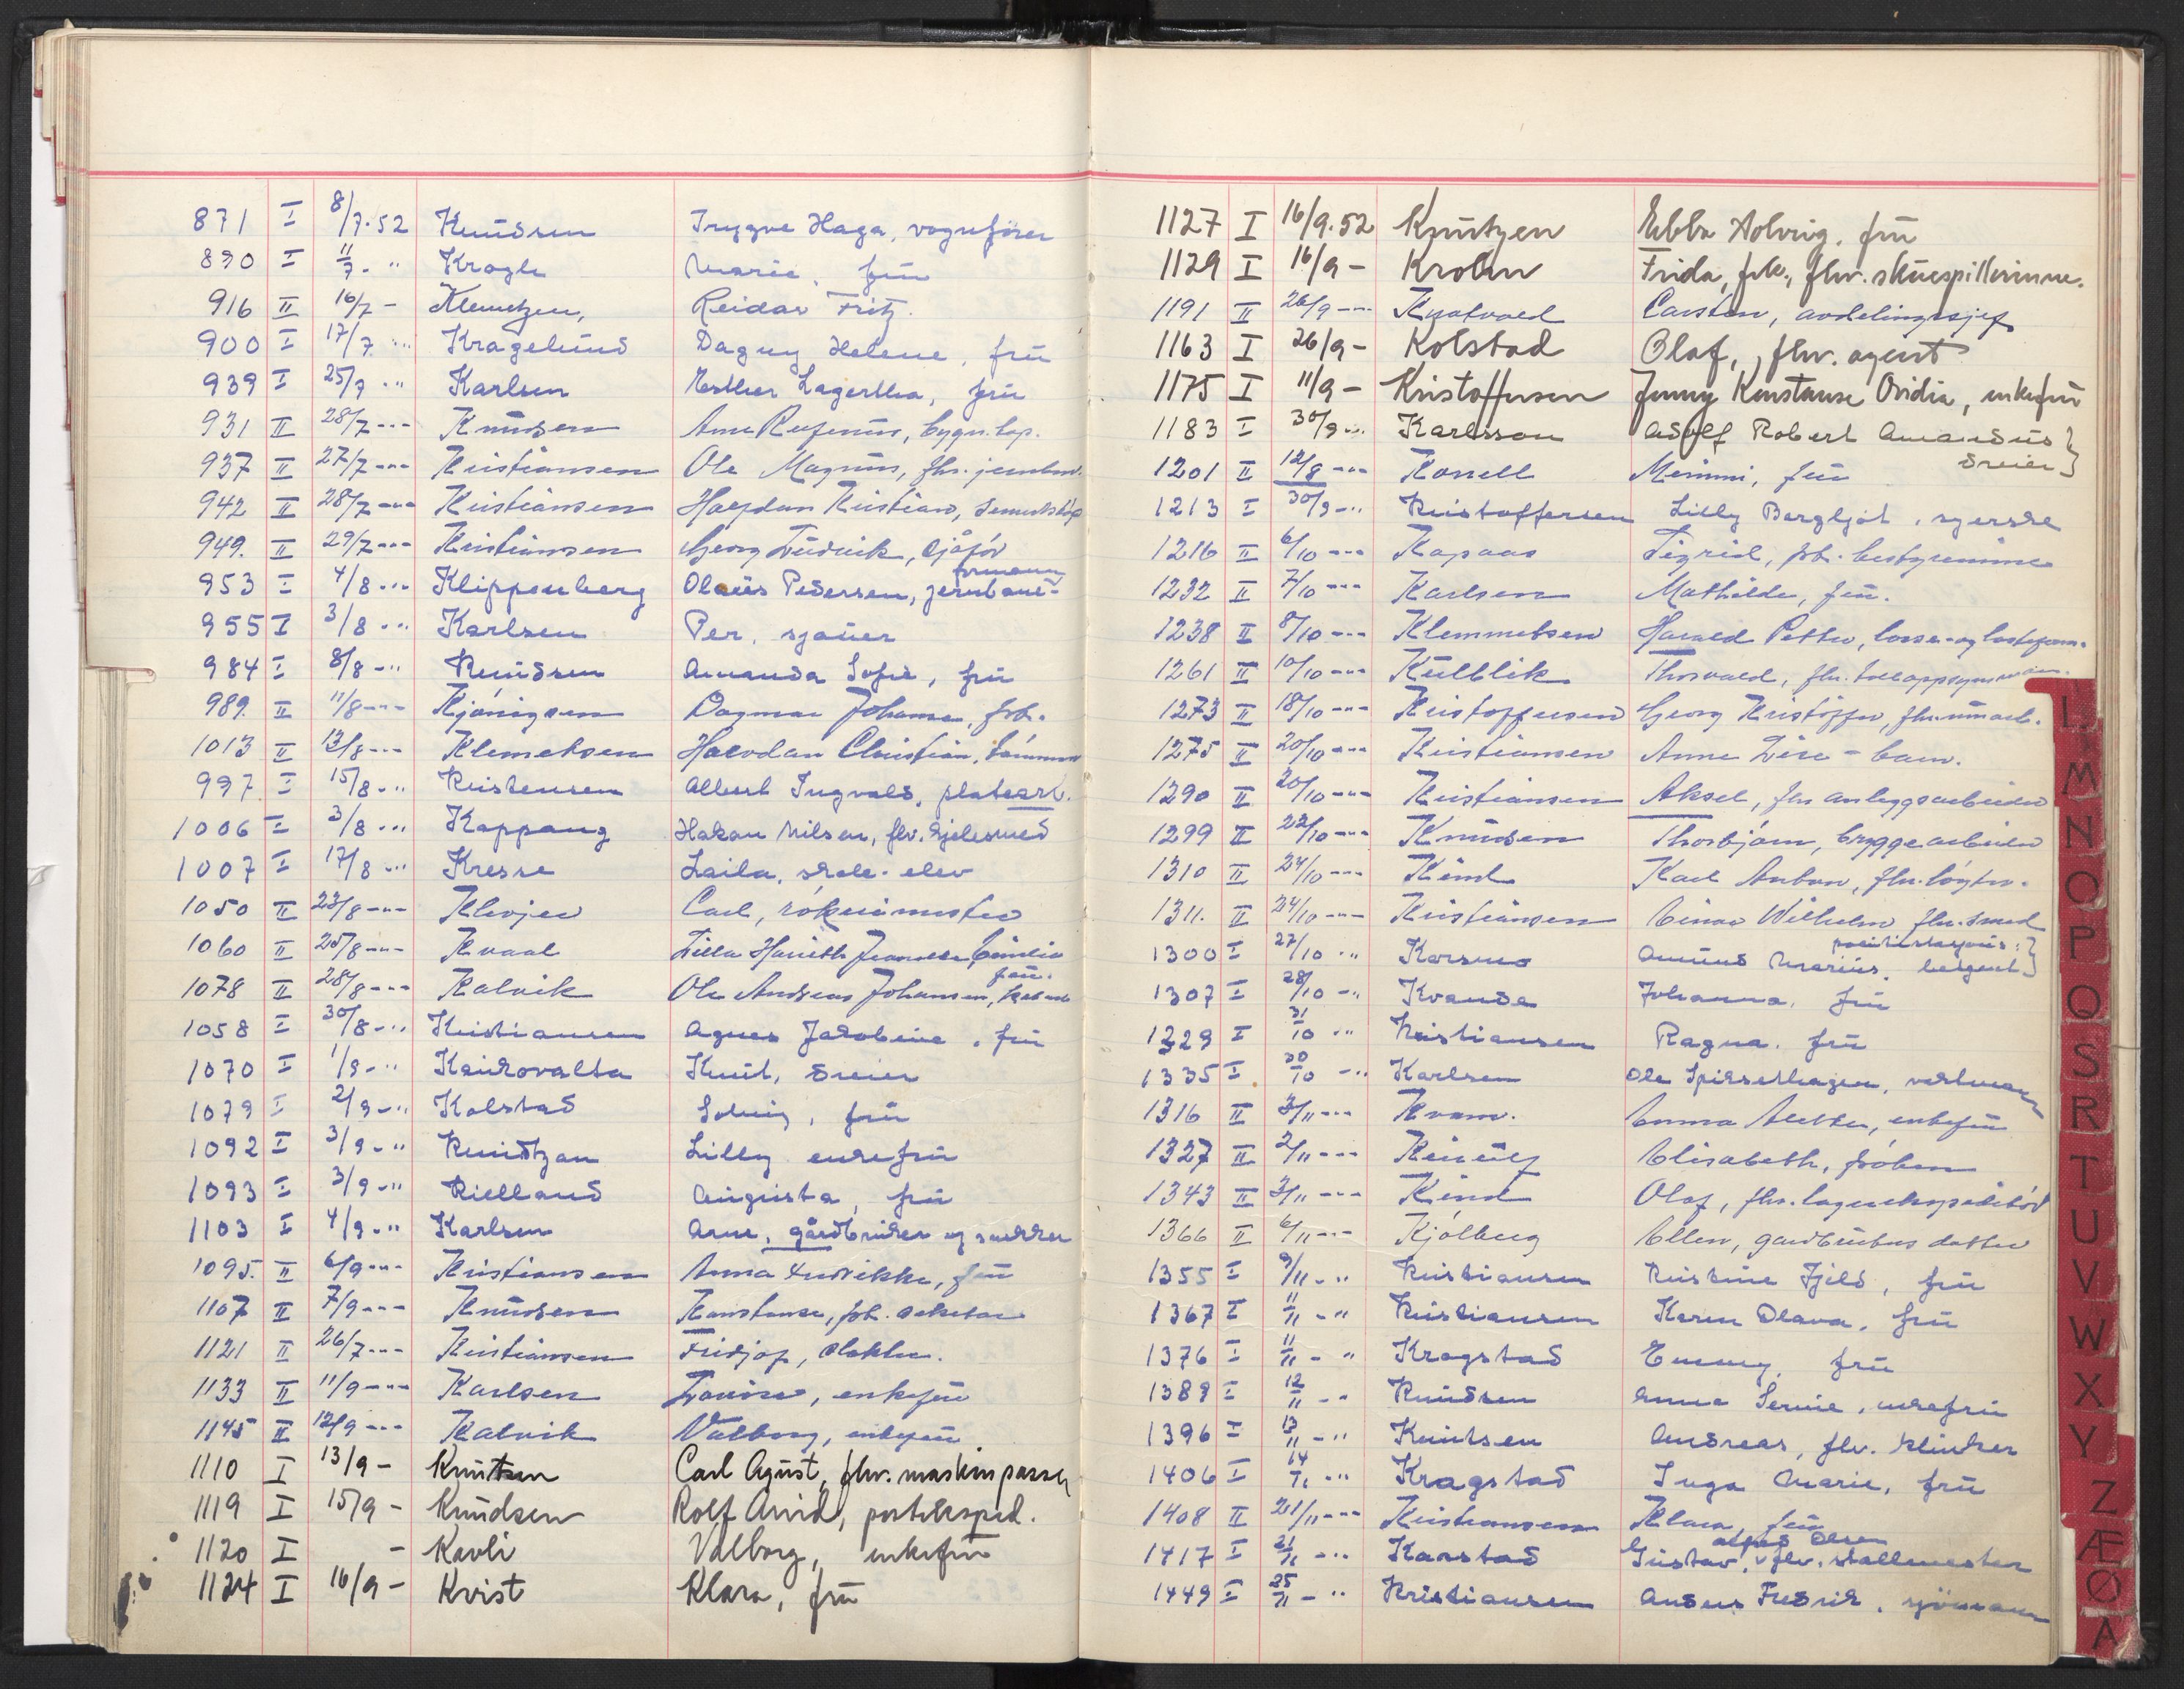 871 I 8/7.52 Knudsen Trygve Haga, vognfører
890 I 11/7 - " Krogh Marie, frü
916 II 16/7 - Klemetzen, Reidar Fritz.
900 I 17/7 - " Kragelund Dagny Helene, frü
939 I 25/7 - " Karlsen Esther Lagertha, frü
931 II 28/7 - " - Knudsen Arne, bygn.
937 II 27/7 - " - Kristiansen Ole Magnus, fhv.
942 II 28/7 - " - Kristiansen Kristian,
949. II 29/7 - " - Kristiansen Georg Ludvik, sjåfør
formann
953 I 4/8 - " Klippenberg Olaüs Pedersen, jernbane-
955 I 3/8 - " Karlsen Per, sjauer
984 I 8/8 - " Knudsen Amanda Sofie, frü
989. II 11/8 - " - Dagmar Johanna, frk.
1013 II 13/8 - " - Klemetsen Halvdan Christian, tømmerm
997. I 15/8 - " Kristensen Albert Ingvald, platearb.
1006 I 3/8 - " Kappang Hakon Nilsen, flv.
1007 I 17/8 - " Kresse Laila, skole-elev
1050 II 23/8 - " - Carl,
1060 II 25/8 - " - Kvaal
frü.
1078 II 28/8 - " - Kalvik Ole Andreas Johansen,
1058 I 30/8 - " Kristiansen Agnes Jakobine, frü
1070 I 1/9 - " Knut, dreier
1079 I 2/9 - " Kolstad Solveig, frü
1092 I 3/9 - " Knudtzon Lilly enkefrü
1093 I 3/9 - " Kielland Augusta, frü
1103 I 4/9 - " Karlsen Arne, gårdbruker og snekker
1095. II 6/9 - " - Kristiansen Anna Fredrikke, frü
1107 II 7/9 - " - Knudsen Konstanse, frk.
1121 II 26/7 - " - Kristiansen Fridjof, slakter.
1133 II 11/9 - " - Karlsen Lovise, enkefrü
1145 II 12/9 - " - Kalvik Valborg, enkefrü
1110 I 13/9 - Knutsen Carl Agüst, fhv. maskinpasser
1119 I 15/9 - Knudsen Rolf Arvid, posteksped.
1120 I - Kavli Valborg, enkefrü
1124 I 16/9 - Kvist Klara, frü
1127 I 16/9.52 Knutzen Ebba Solveig, frü
1129 I 16/9 - Krohn Frida, frk., fhv. skuespillerinne.
1191 II 26/9 - " - Carsten, avdelingssjef
1163 I 26/9 - Kolstad Olaf, fhv. agent
1175 I 11/9 - Kristoffersen Jenny Konstanse Ovidia, enkefrü
1183 I 30/9 - " Karlsson Adolf Robert Amandus }
dreier }
1201 II 12/8 - " - Mimmi, frü
1213 I 30/9 - " Kristoffersen Lilly Bergljot, syerske
1216 II 6/10 - " - Kapaas Sigrid, frk. bestyrerinne
1232 II 7/10 - " - Karlsen Mathilde, frü.
1238 II 8/10 - " - Klemmetsen Harald Petter, losse- og lasteform.
1261 II 10/10 - " - Külblik Thorvald, fhv. tolloppsynsmann.
1273 II 18/10 - " - Kristoffersen Georg Kristoffer, fhv.
1275 II 20/10 - " - Kristiansen Anne Lise - barn.
1290 II 20/10 - " - Kristiansen Aksel, fhv anleggsarbeider
1299 II 22/10 - " - Knudsen Thorbjørn, bryggearbeider
1310 II 24/10 - " - Karl Anton, fhv.
1311. II 24/10 - " - Kristiansen Einar Wilhelm fhv. smed
politistasjons- }
1300 I 27/10 - " Korsmo Amund Marius, betjent }
1307 I 28/10 - " Kvande Johanna, frü
1329 I 31/10 " Kristiansen Ragna, frü
1335 I 30/10 - " Karlsen Ole
1316 II 3/11 - " - Kvam. Emma Alette, enkefrü
1327 II 2/11 - " - Elisabeth, frøken
1343 II 3/11 - " - Kind Olaf, fhv. lagerekspeditør
1366 II 6/11 - " - Kjølberg Ellen, gardbrukers datter
1355 I 9/11 - " Kristiansen Kristine Fjeld, frü
1367 I 11/11 - " Kristiansen Karen Olava, frü
1376 I 11/11 - " Krogstad Emmy, frü
1389 I 12/11 - " Knudsen Anna, enkefrü
1396 I 13/11 - " Knutsen Andreas, flv. klinker
1406 I 14/11 - " Kragstad Inga Marie, frü
1408 II 21/11 - " - Kristiansen Klara, frü
Alfred Olsen
1417 I 21/11 - " Karstad Gustav, flv. stallmester
1449 I 25/11 - " Kristiansen Anders Fredrik, sjömann
L
M
N
O
P
Q
S
R
T
U
V
W
X
Y
Z
Æ
Ø
A